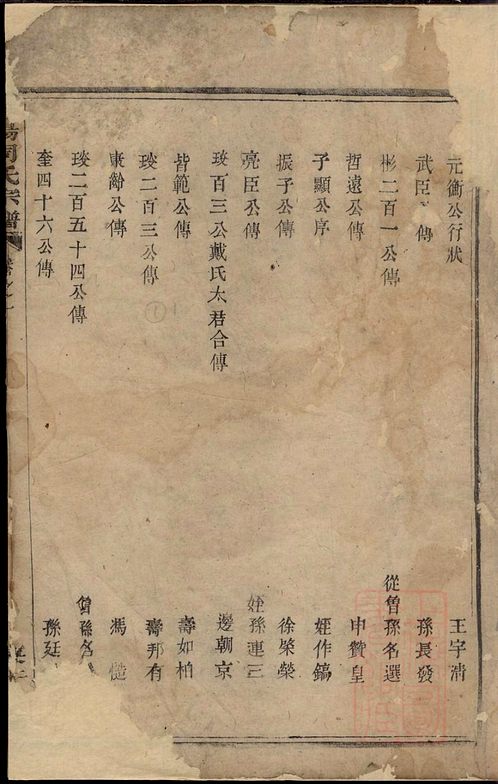 元衡公行狀 王宇清
武臣 傳 孫長發
彬二百一公傳 從曾孫名選
哲遠公傳 申贊皇
子顯公序 姪作鎬
振子公傳 徐榮榮
亮臣公傳 姪孫連三
琰百三公戴氏太君合傳 邊朝京
皆範公傳 壽如柏
琰二百三公傳 壽邦有
東齡公傳 馮
琰二百五十四公傳 曾孫名
奎四十六公傳 孫廷
氏宗譜